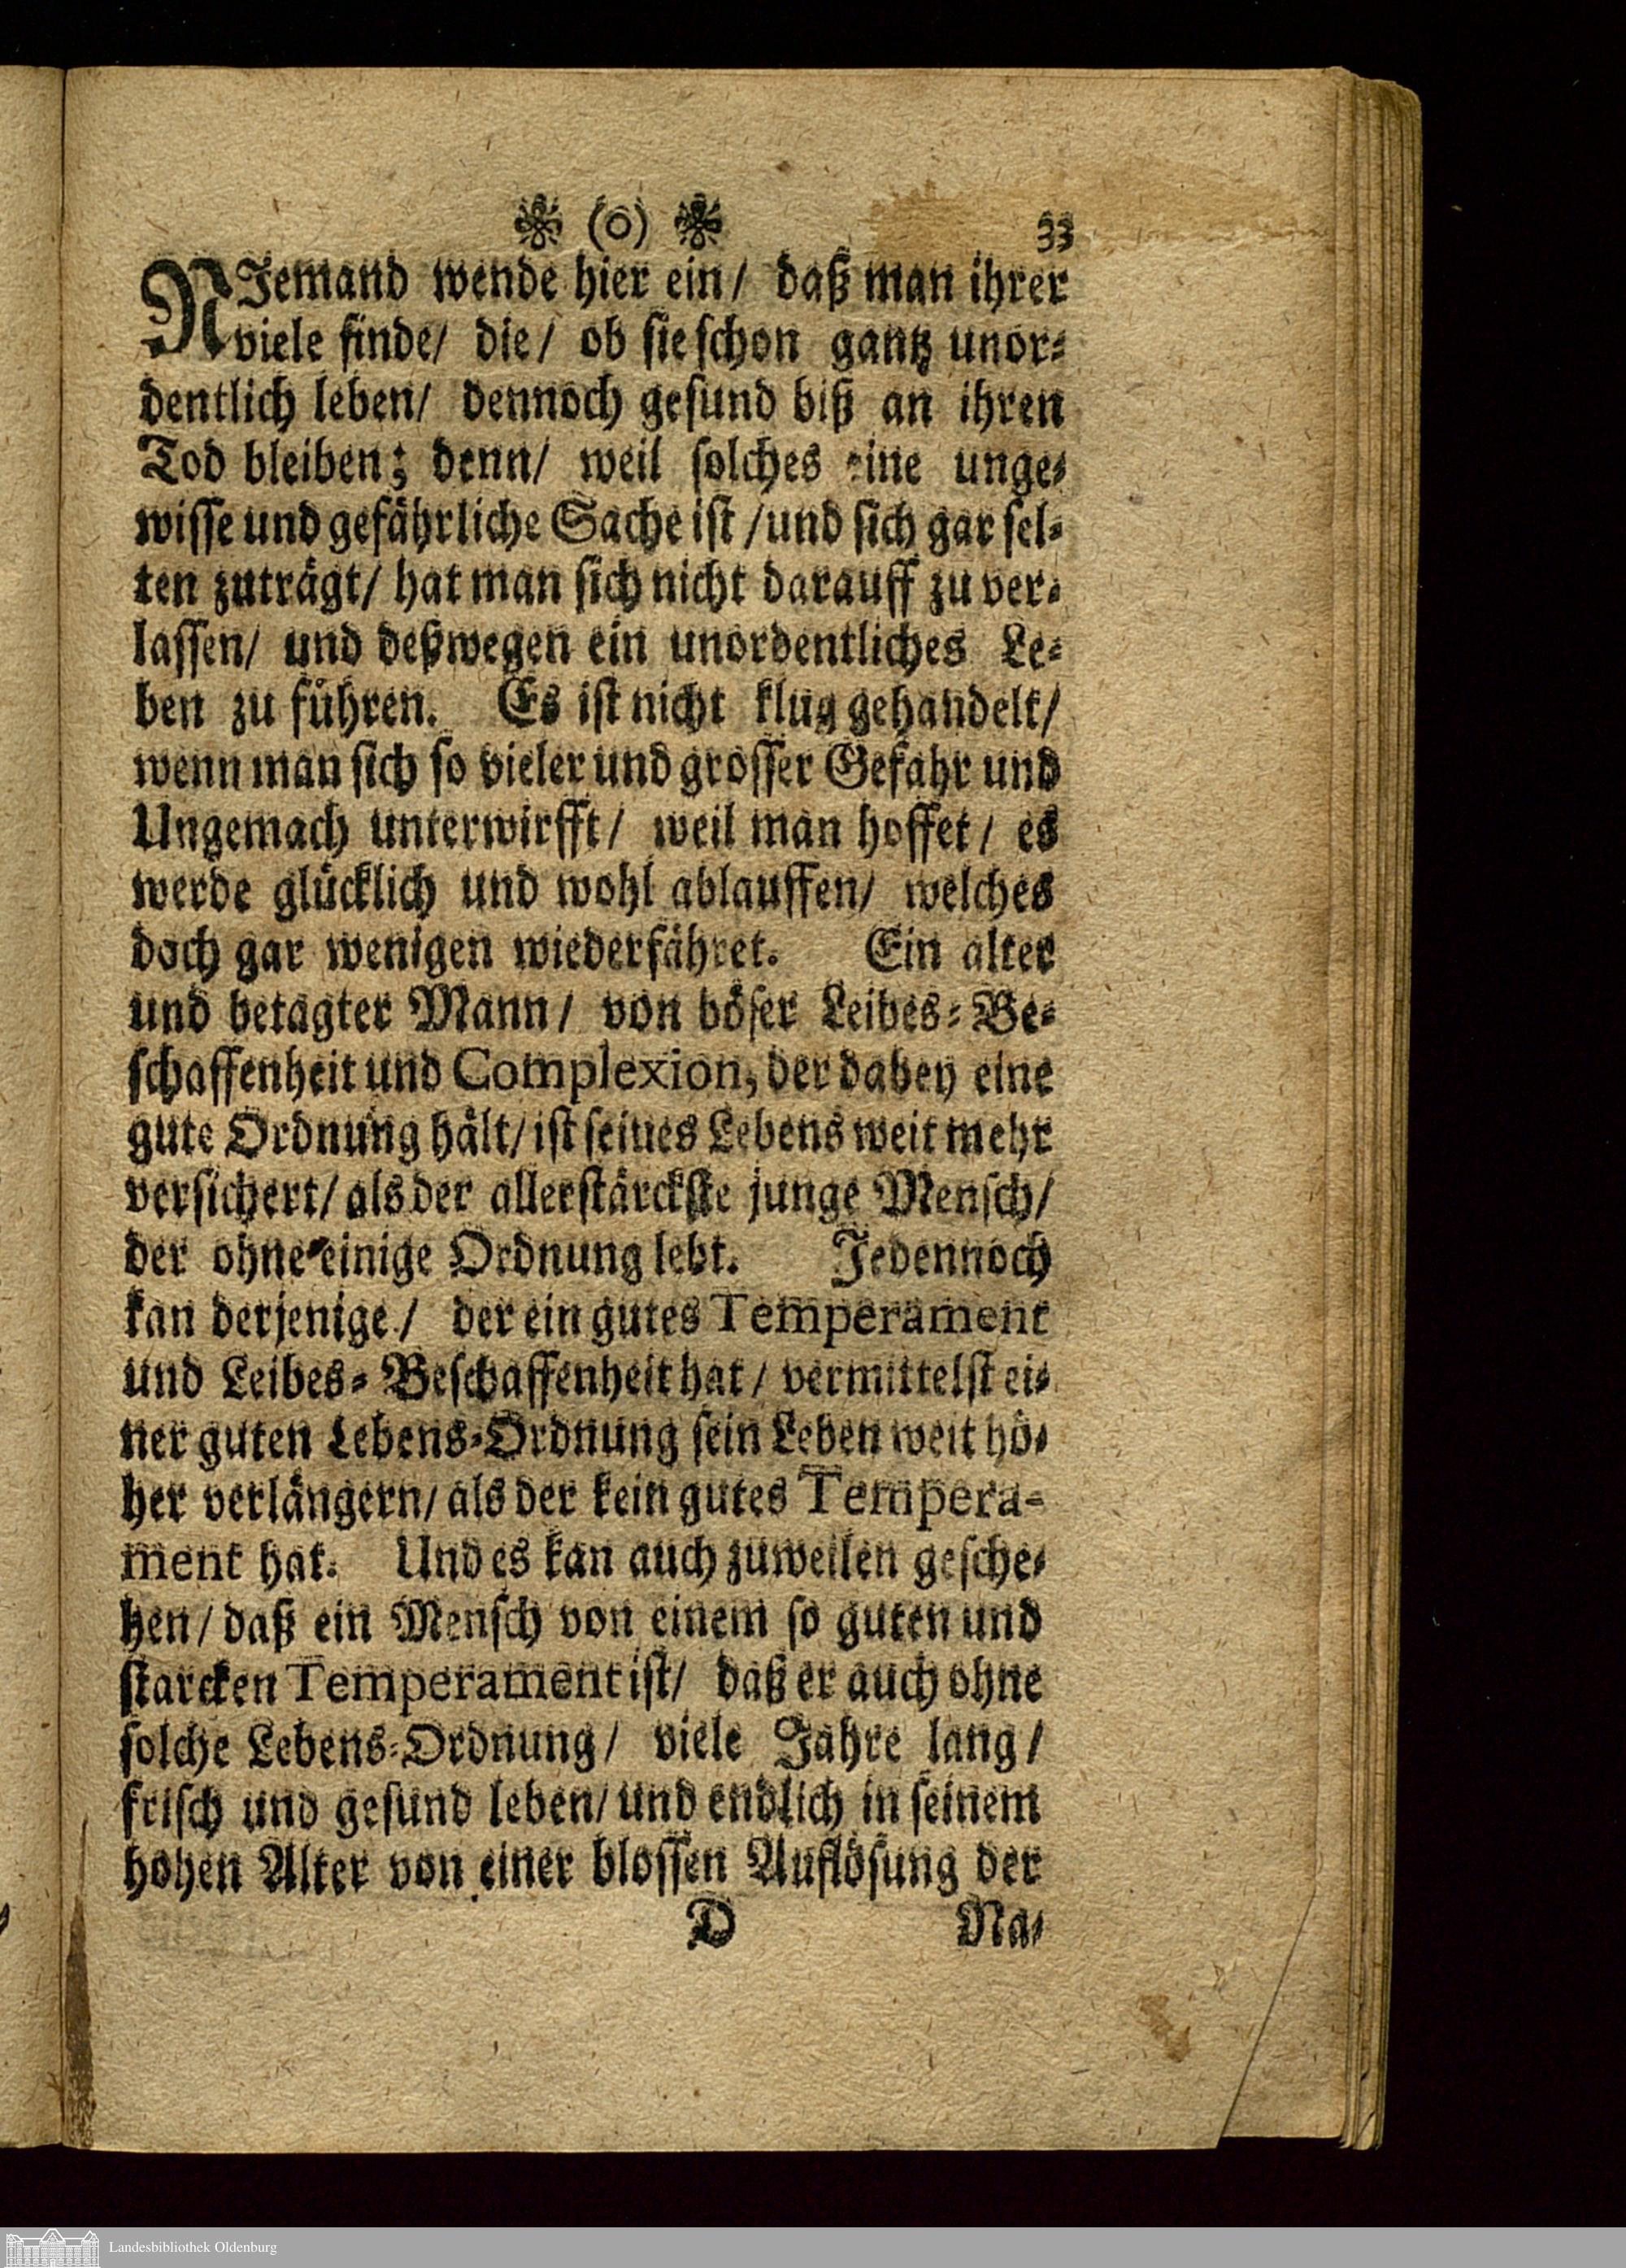 (o) 33
NJemand wende hier ein/ daß man ihrer
viele finde/ die/ ob sie schon gantz unor-
dentlich leben/ dennoch gesund biß an ihren
Tod bleiben; denn/ weil solches eine unge-
wisse und gefährliche Sache ist /und sich gar sel-
ten zuträgt/ hat man sich nicht darauff zu ver-
lassen/ und deßwegen ein unordentliches Le-
ben zu führen. Es ist nicht klug gehandelt/
wenn man sich so vieler und grosser Gefahr und
Ungemach unterwirfft/ weil man hoffet/ es
werde glücklich und wohl ablauffen/ welches
doch gar wenigen wiederfähret. Ein alter
und betagter Mann/ von böser Leibes-Be-
schaffenheit und Complexion, der dabey eine
gute Ordnung hält/ ist seines Lebens weit mehr
versichert/ als der allerstärckste junge Mensch/
der ohne einige Ordnung lebt. Jedennoch
kan derjenige/ der ein gutes Temperament
und Leibes-Beschaffenheit hat/ vermittelst ei-
ner guten Lebens-Ordnung sein Leben weit hö-
her verlängern/ als der kein gutes Tempera-
ment hat. Und es kan auch zuweilen gesche-
hen/ daß ein Mensch von einem so guten und
starcken Temperament ist/ daß er auch ohne
solche Lebens-Ordnung/ viele Jahre lang/
frisch und gesund leben/ und endlich in seinem
hohen Alter von einer blossen Auflösung der
D Na-
Landesbibliothek Oldenburg